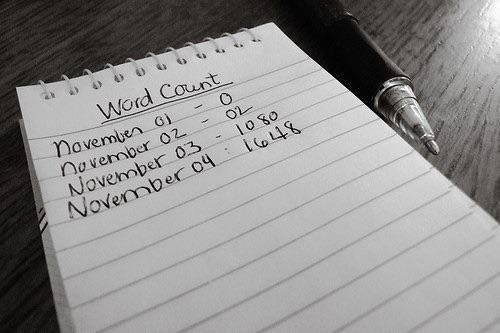 Word Count
November 01 - 0
November 02 - 02
November 03 - 1080
November 04 : 1648